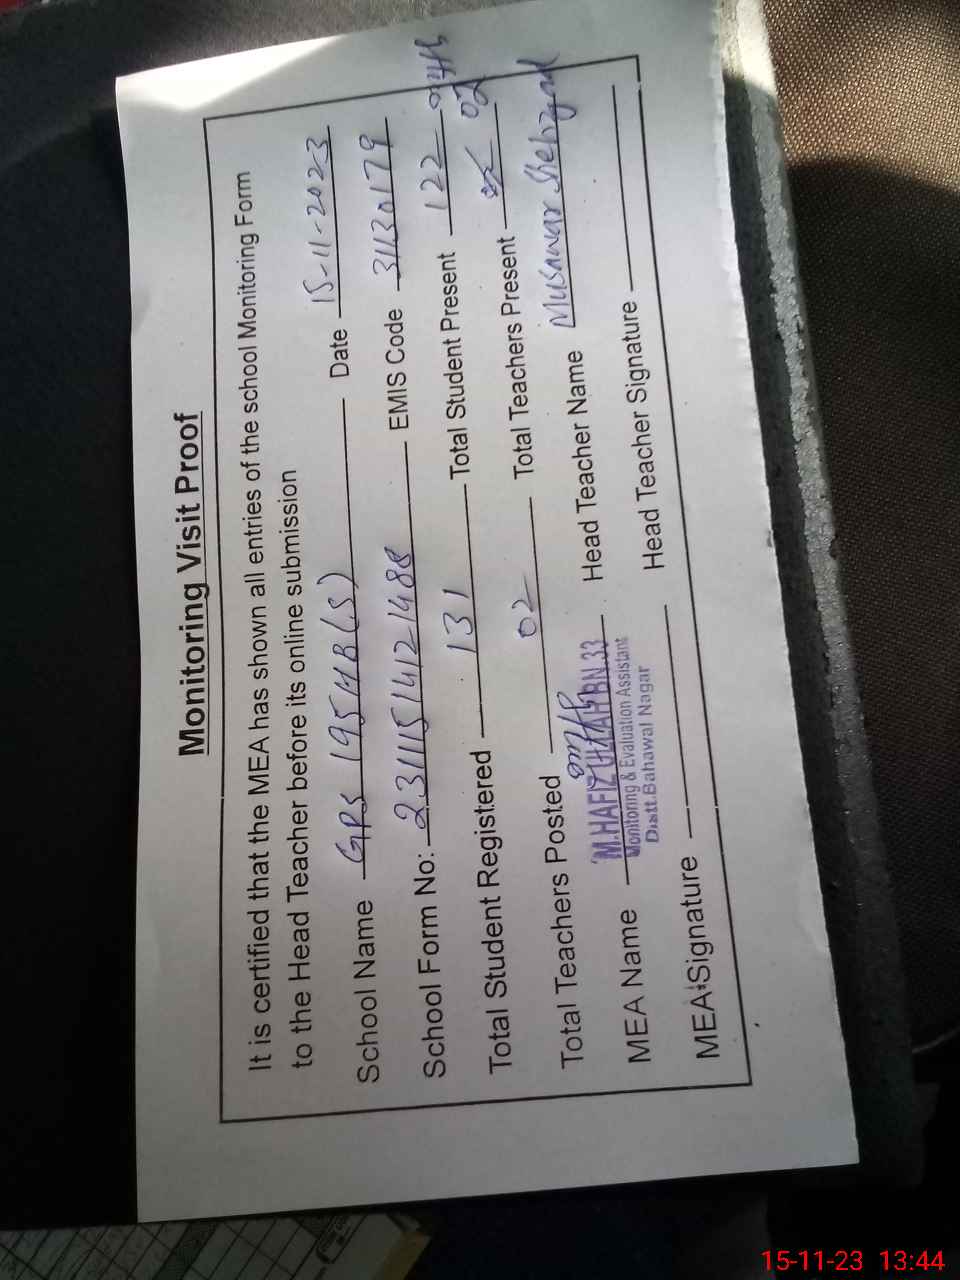 Monitoring Visit Proof
It is certified that the MEA has shown all entries of the school Monitoring Form
to the Head Teacher before its online submission
School Name GPS 195/HB(S) Date 15-11-2023
School Form No: 23111514121488 EMIS Code 31130179
Total Student Registered 131 Total Student Present 122
Total Teachers Posted 02 Total Teachers Present 02
MEA Name M.HAFIZ ULLAH BN.33 Head Teacher Name Musawar Shehzad
Monitoring & Evaluation Assistant
Distt.Bahawal Nagar
MEA Signature Head Teacher Signature
15-11-23 13:44